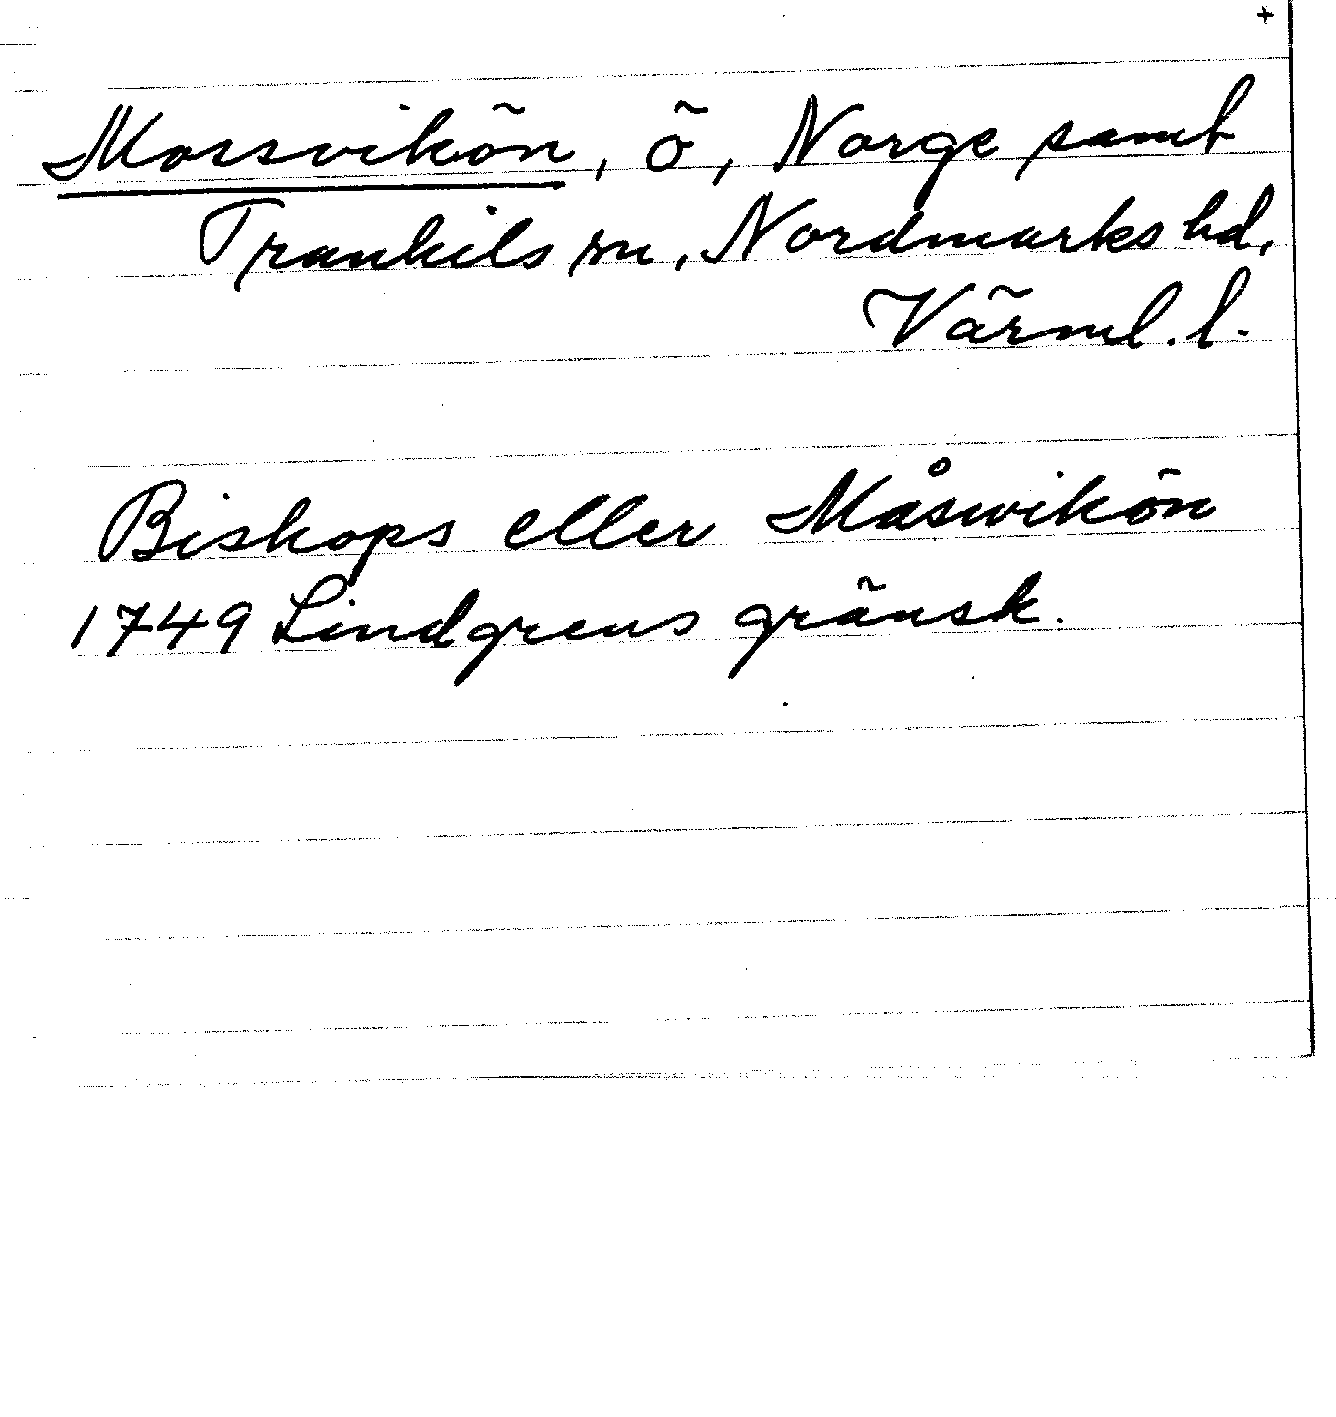 +
Mossvikön, ö, Norge samt
Trankils sn, Nordmarks hd,
Värml. l.
Biskops eller Måswikön
1749 Lindgrens gränsk.